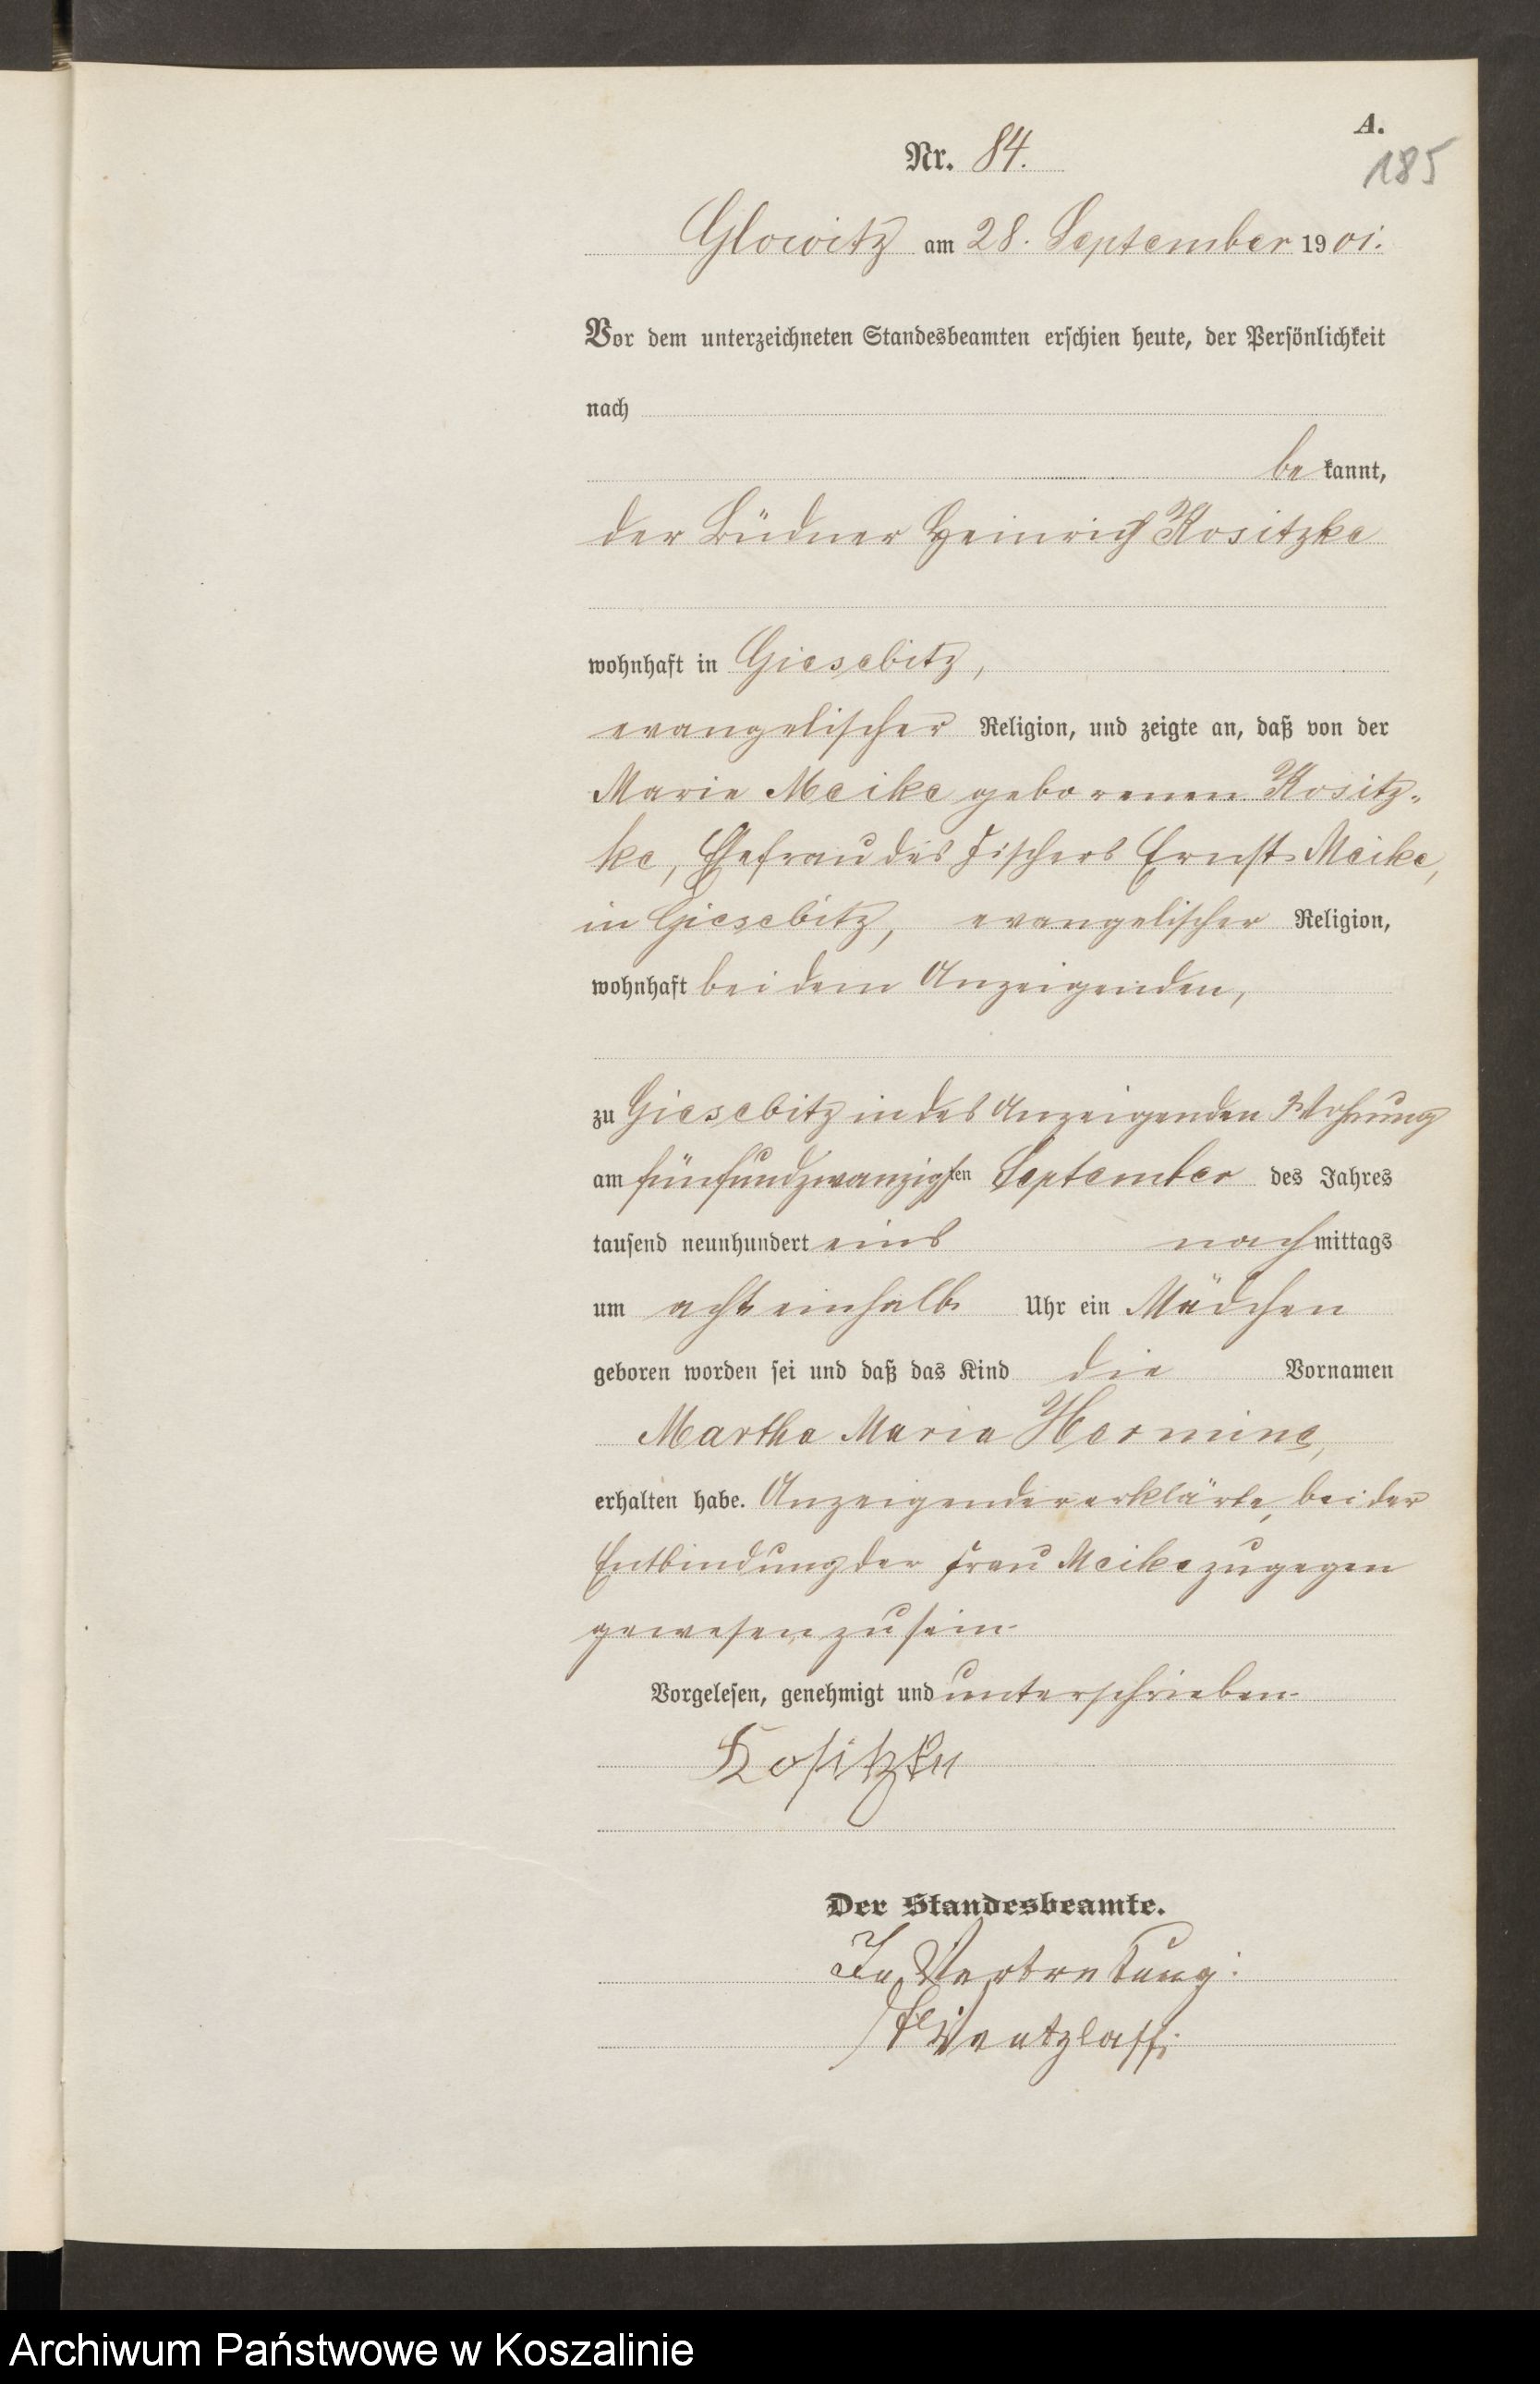 A.
185
Nr. 84.
Glowitz am 28. September 1901.
Vor dem unterzeichneten Standesbeamten erschien heute, der Persönlichkeit
nach
bekannt,
der Büdner Heinrich Kositzke
wohnhaft in Giesebitz,
evangelischer Religion, und zeigte an, daß von der
Marie Meike geborenen Kositz-
ke, Ehefrau des Fischers Ernst Meike,
in Giesebitz, evangelischer Religion,
wohnhaft bei dem Anzeigenden,
zu Giesebitz in des Anzeigenden Wohnung
am fünfundzwanzigsten September des Jahres
tausend neunhundert eins nachmittags
um acht einhalb Uhr ein Mädchen
geboren worden sei und daß das Kind die Vornamen
Martha Maria Hermine,
erhalten habe. Anzeigender erklärte, bei der
Entbindung der Frau Meike zugegen
gewesen zu sein.
Vorgelesen, genehmigt und unterschrieben.
Kositzke
Der Standesbeamte.
In Vertretung:
Wentzlaff.
Archiwum Państwowe w Koszalinie